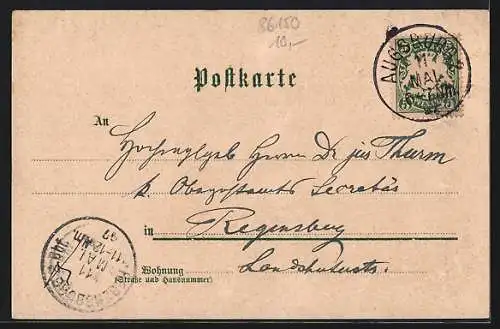 86150
10,-
AUGSBURG 2
11
MAI
Postkarte
An
Hochwohlgeb Herrn Dr jur Thurm
k. Oberpostamts Secretär
in Regensburg
Wohnung
(Straße und Hausnummer)
REGENSBURG
11
MAI
11-12 Nm
97